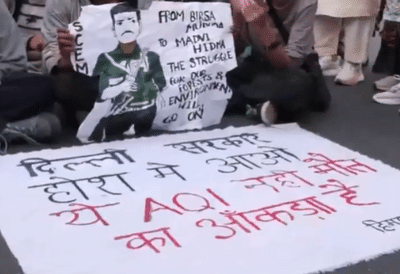 FROM BIRSA
MUNDA
TO MADVI
HIDMA
THE STRUGGLE
FOR OUR
FORESTS &
ENVIRONMENT
WILL
GO ON
दिल्ली सरकार
होश मे आओ
ये AQI नही मौत
का आँकड़ा है